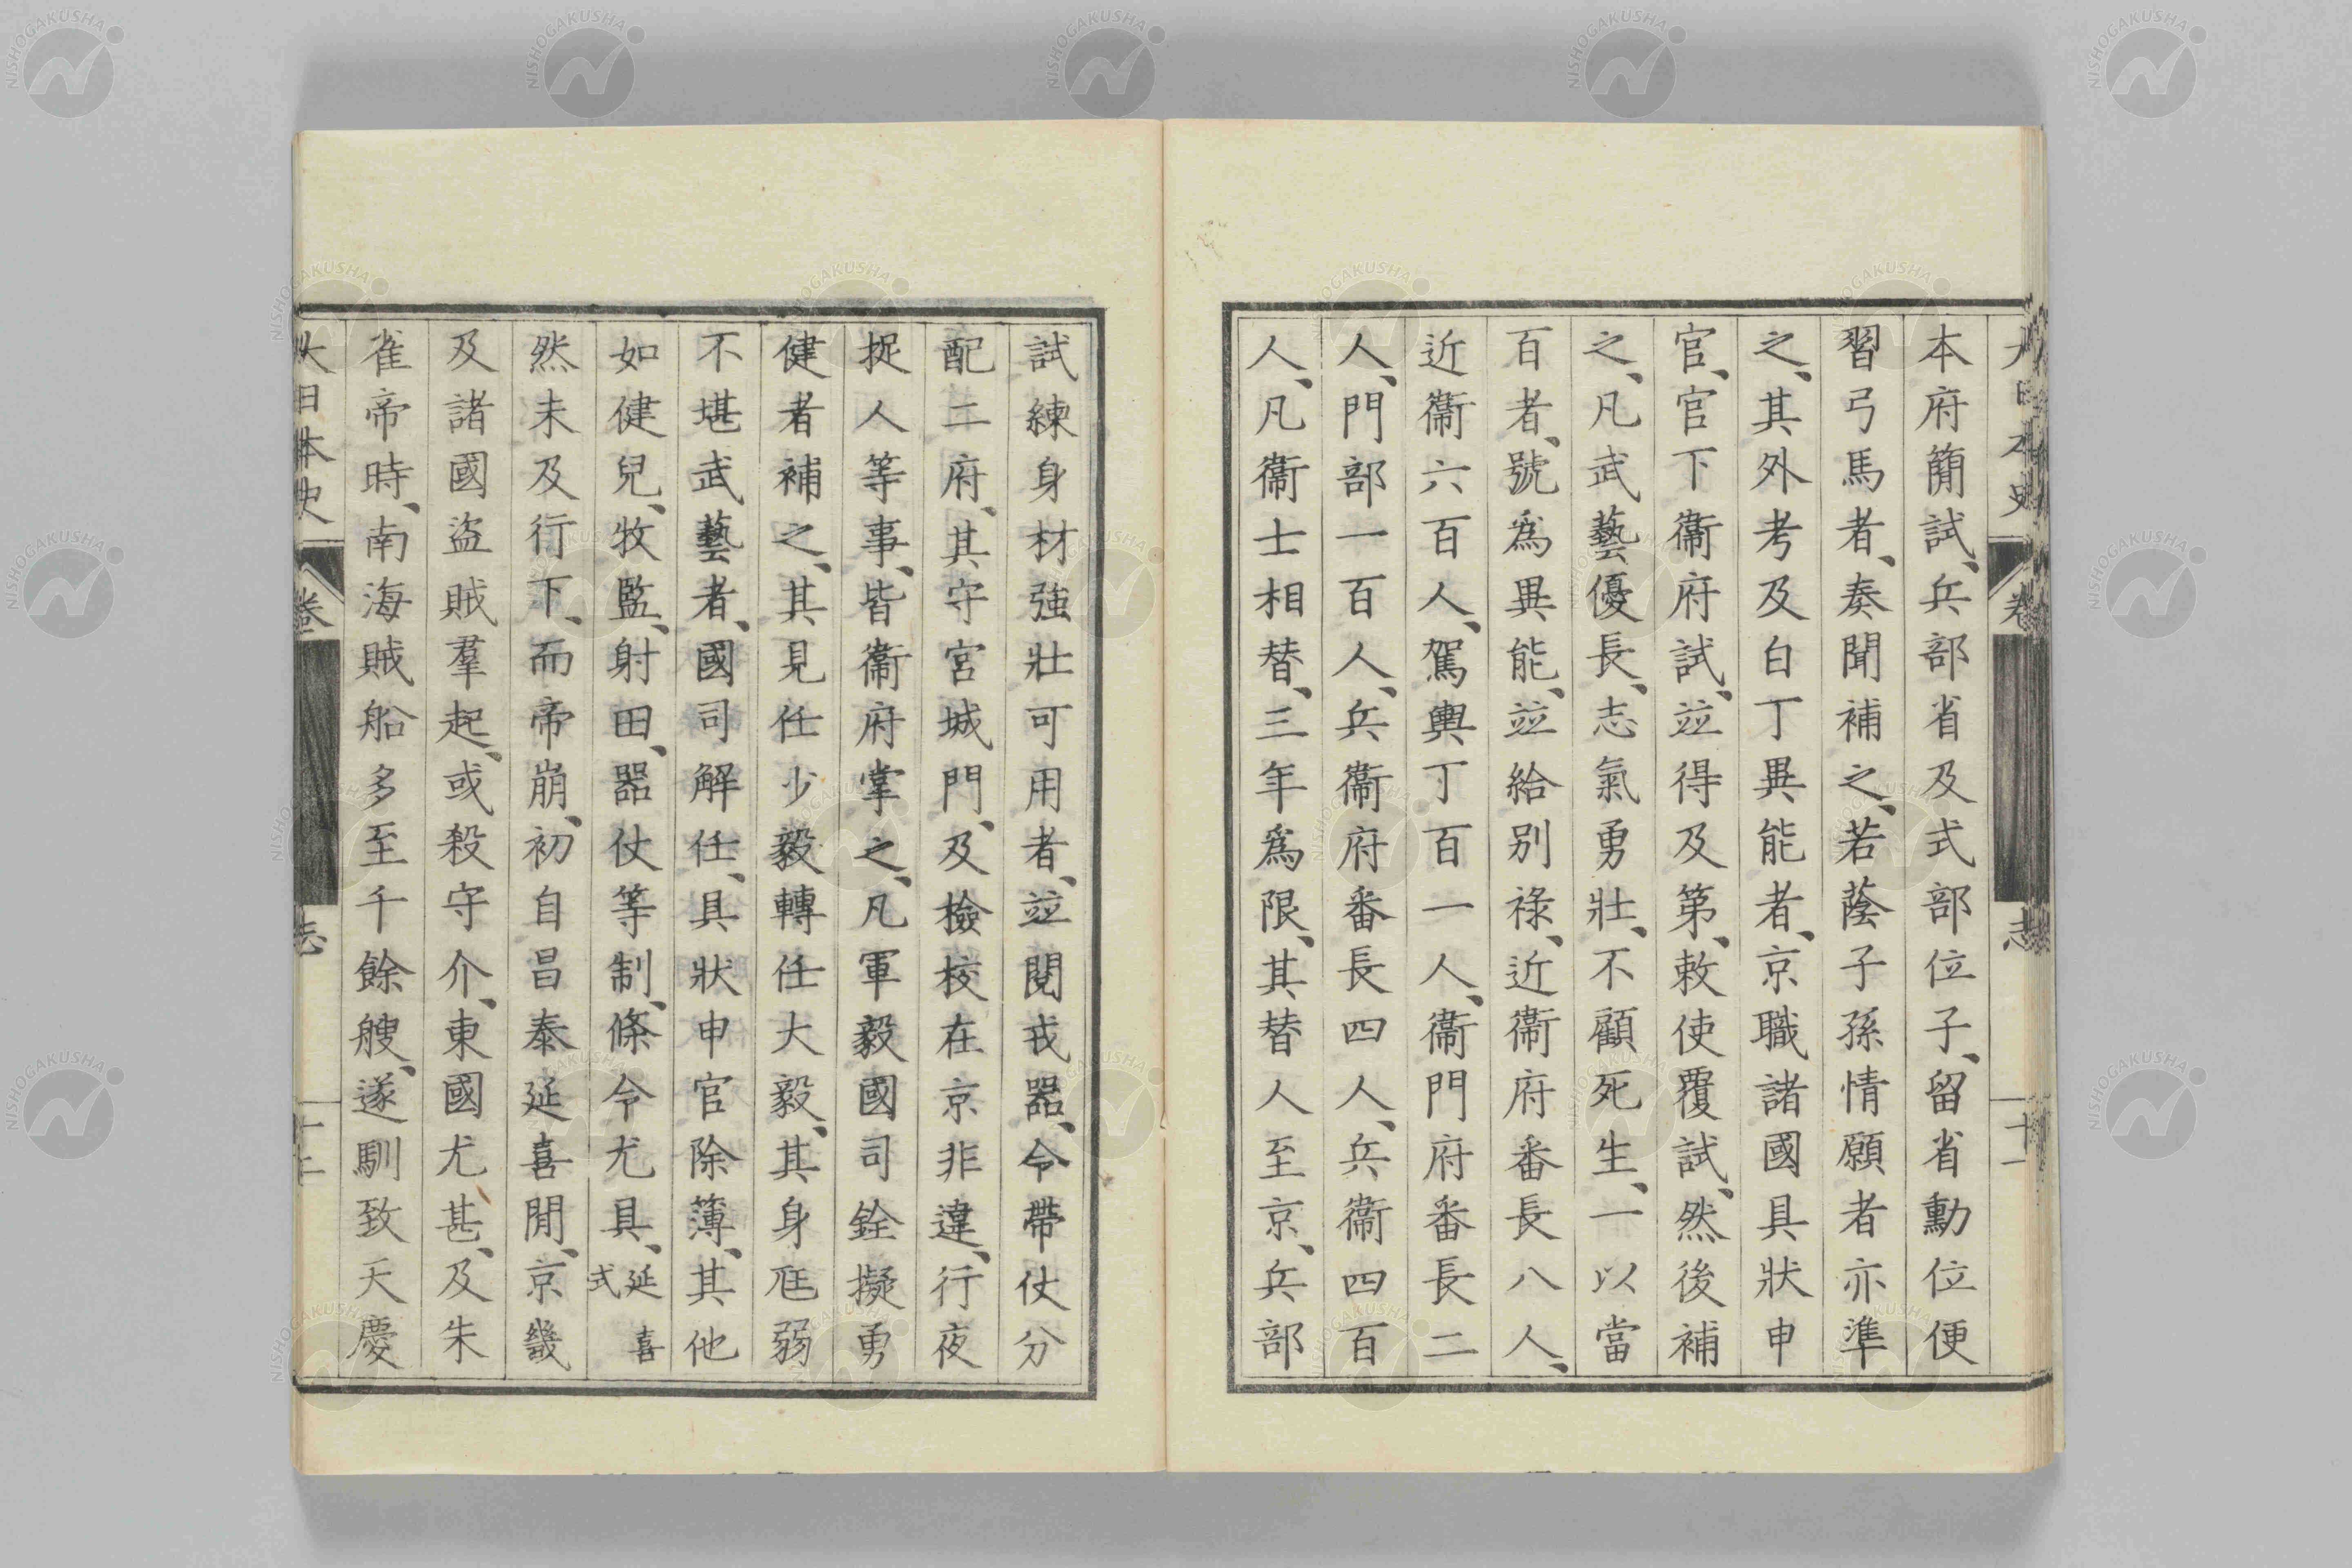 大日本史 卷 志 十一
本府簡試、兵部省及式部位子、留省勳位便
習弓馬者、奏聞補之、若蔭子孫情願者亦準
之、其外考及白丁異能者、京職諸國具狀申
官、官下衞府試、竝得及第、敕使覆試、然後補
之、凡武藝優長、志氣勇壯、不顧死生、一以當
百者、號爲異能、竝給別祿、近衞府番長八人、
近衞六百人、駕輿丁百一人、衞門府番長二
人、門部一百人、兵衞府番長四人、兵衞四百
人、凡衞士相替、三年爲限、其替人至京、兵部
試練身材強壯可用者、竝閱戎器、令帶仗分
配二府、其守宮城門、及檢校在京非違、行夜
捉人等事、皆衞府掌之、凡軍毅國司銓擬勇
健者補之、其見任少毅轉任大毅、其身尫弱
不堪武藝者、國司解任、具狀申官除簿、其他
如健兒、牧監、射田、器仗等制、條令尤具、延喜式
然未及行下、而帝崩、初自昌泰延喜閒、京畿
及諸國盜賊羣起、或殺守介、東國尤甚、及朱
雀帝時、南海賊船多至千餘艘、遂馴致天慶
大日本史 卷 志 十二
NISHOGAKUSHA